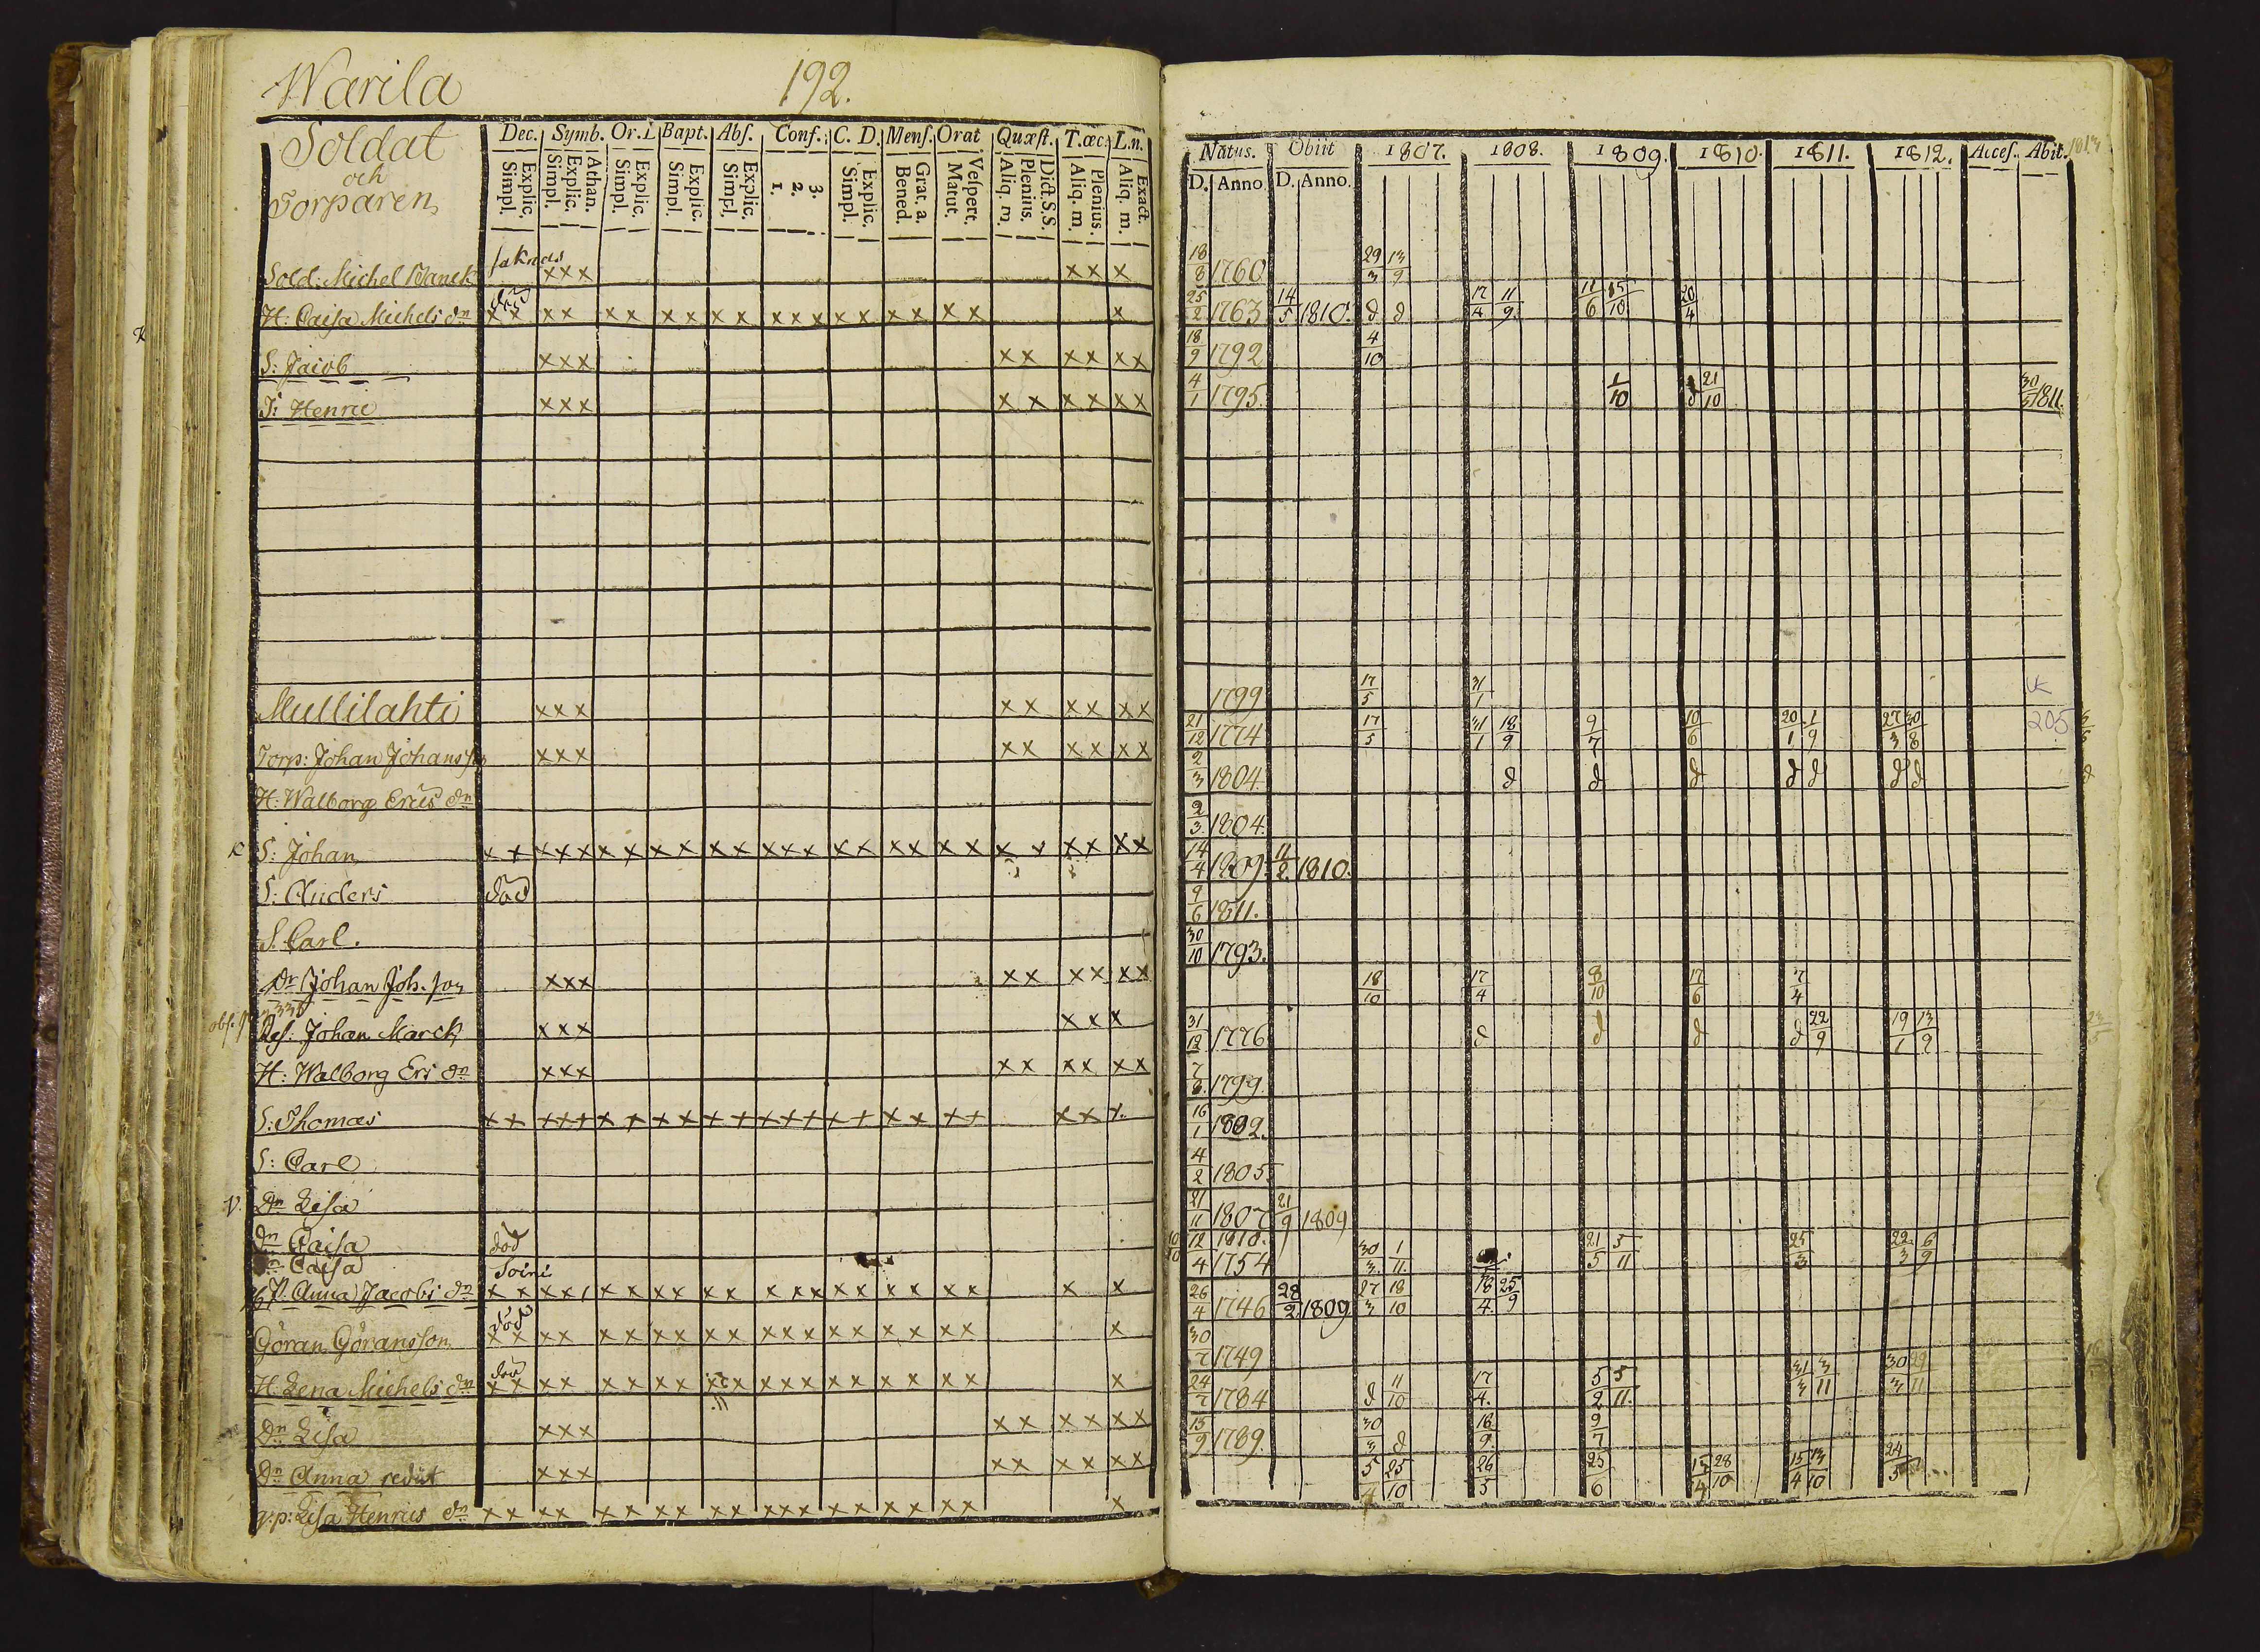 Warila 192.
Soldat
och
Torparen
Dec. Symb. Or. L Bapt. Abſ. Conf. C. D. Menſ. Orat Quæſt. T. œc. L.n.
Explic. Simpl. Athan. Explic. Simpl. Explic. Simpl. Explic. Simpl. Explic. Simpl. 3. 2. 1. Explic. Simpl. Grat. a. Bened. Veſpert. Matut. Dict. S.S. Plenius. Aliq. m. Plenius. Aliq. m Exact. Aliq. m.
Sold: Michel saknas xxx xx x
H: Caisa Michels dn död xx xx xx xx xx xxx xx xx xx x
S: Jacob xxx xx xx xx
S: Henric xxx xx xx xx
Mullilahti xxx xx xx xx
Torp: Johan Johansson xxx xx xx xx
H: Walborg Erics dn
K S: Johan xx xxx xx xx xx xxx xx xx xx xx xx xx
S: Anders död
S. Carl.
Dr Johan Joh. son xxx xx xx xx
Johan Marck xxx xx x
H: Walborg Eri dn xxx xx xx xx
S: Thomas xx xxx xx xx xx xxx xx xx xx xx x.
S: Carl
V. Dn Lisa
Dn Caisa död
Dn Caisa Soini
Anna Jacobs dn xx xx xx xx xx xxx xx xx xx x x
Göran Göransson död xx xx xx xx xx xxx xx xx xx x
H. Lena Michels dn död xx xx xx xx xx xxx xx xx xx x
Dn Lisa xxx xx xx xx
Dn Anna rediit xxx xx xx xx
Lisa Henrics dn xx xx xx xx xx xxx xx xx xx x
Natus. Obiit 1807. 1808. 1809. 1810. 1811. 1812. Acceſ. Abit. 1813
D. Anno D. Anno.
18/8 1760 29/3 13/9
25/2 1763 14/5 1810. d d 17/4 11/9 11/6 15/10 20/4
18/9 1792 4/10
4/1 1795. 1/10 d 21/10 30/5 1811.
1799 17/5 31/1
21/12 1774 17/5 31/1 18/9 9/7 10/6 20/1 1/9 27/3 30/8 205
2/3 1804. d d d d d d d d
2/3 1804.
14/4 1809. 11/2 1810.
9/6 1811.
30/10 1793.
18/10 17/4 8/10 17/6 7/4
31/12 1776 d d d d 22/9 19/1 13/9
7/8 1799.
16/1 1802.
4/2 1805
21/11 1807 21/9 1809
12 1810.
4 1754 30/3 1/11 21/5 5/11 25/3 22/3 6/9
26/4 1746 28/2 1809 27/3 18/10 18/4 25/9
30/7 1749
24/7 1784 d 11/10 17/4. 5/2 5/11. 31/3 3/11 30/3
15/9 1789. 30/3 d 16/9. 9/7
5/4 25/10 26/5 25/6 15/4 28/10 15/4 13/10 24/5